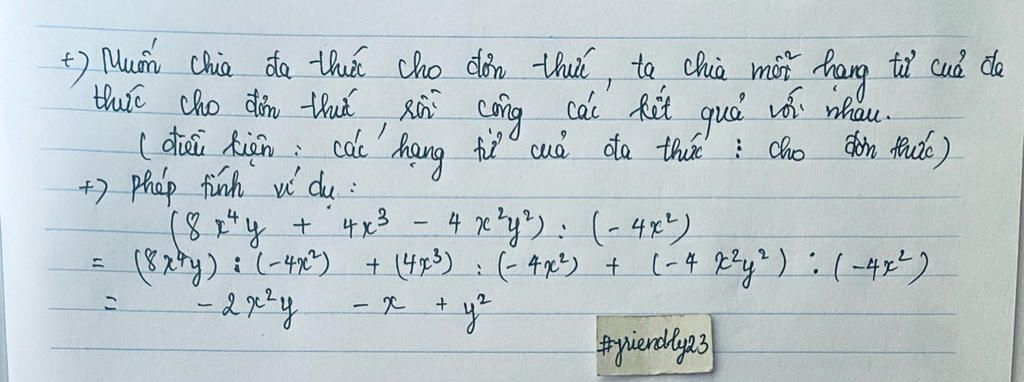 +) Muốn chia đa thức cho đơn thức, ta chia mỗi hạng tử của đa
thức cho đơn thức, rồi cộng các kết quả với nhau.
(điều kiện : các hạng tử của đa thức : cho đơn thức)
+) phép tính ví dụ :
(8x⁴y + 4x³ - 4x²y²) : (-4x²)
= (8x⁴y) : (-4x²) + (4x³) : (-4x²) + (-4x²y²) : (-4x²)
= -2x²y - x + y²
#friendly23